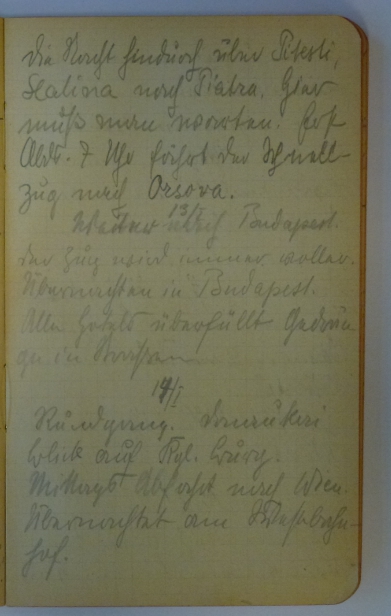 die Nacht hindurch über Pitesti,
Slatina nach Piatra. Hier
muß man warten. Erst
Abds. 7 Uhr fährt der Schnell-
zug nach Orsova.
13/I
Weiter nach Budapest.
Der Zug wird immer voller.
Übernachten in Budapest.
Alle Hotels überfüllt Gedrän
ge in Strassen
14/I
Rundgang.
blick auf Kgl. Burg.
Mittags Abfahrt nach Wien.
Übernachtet am Westbahn-
hof.